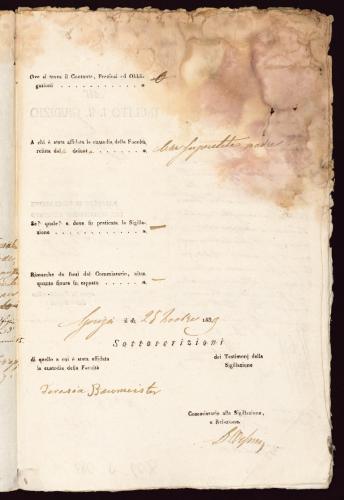 Ove si trova il Contante, Preziosi ed Obbli-
gazioni
A chi è stata affidata la custodia della Facoltà
relitta del defunt a. alla superstite madre
Se? quale? e dove fu praticata la Sigilla-
zione —
Rimarche da farsi dal Commissario, oltre
quanto finora fu esposto —
Gorizia il dì 28 183
Sottoscrizioni
di quello a cui è stata affidata
la custodia della Facoltà
dei Testimonj della
Sigillazione
Teresia Baumeister
Commissario alla Sigillazione,
e Relazione.